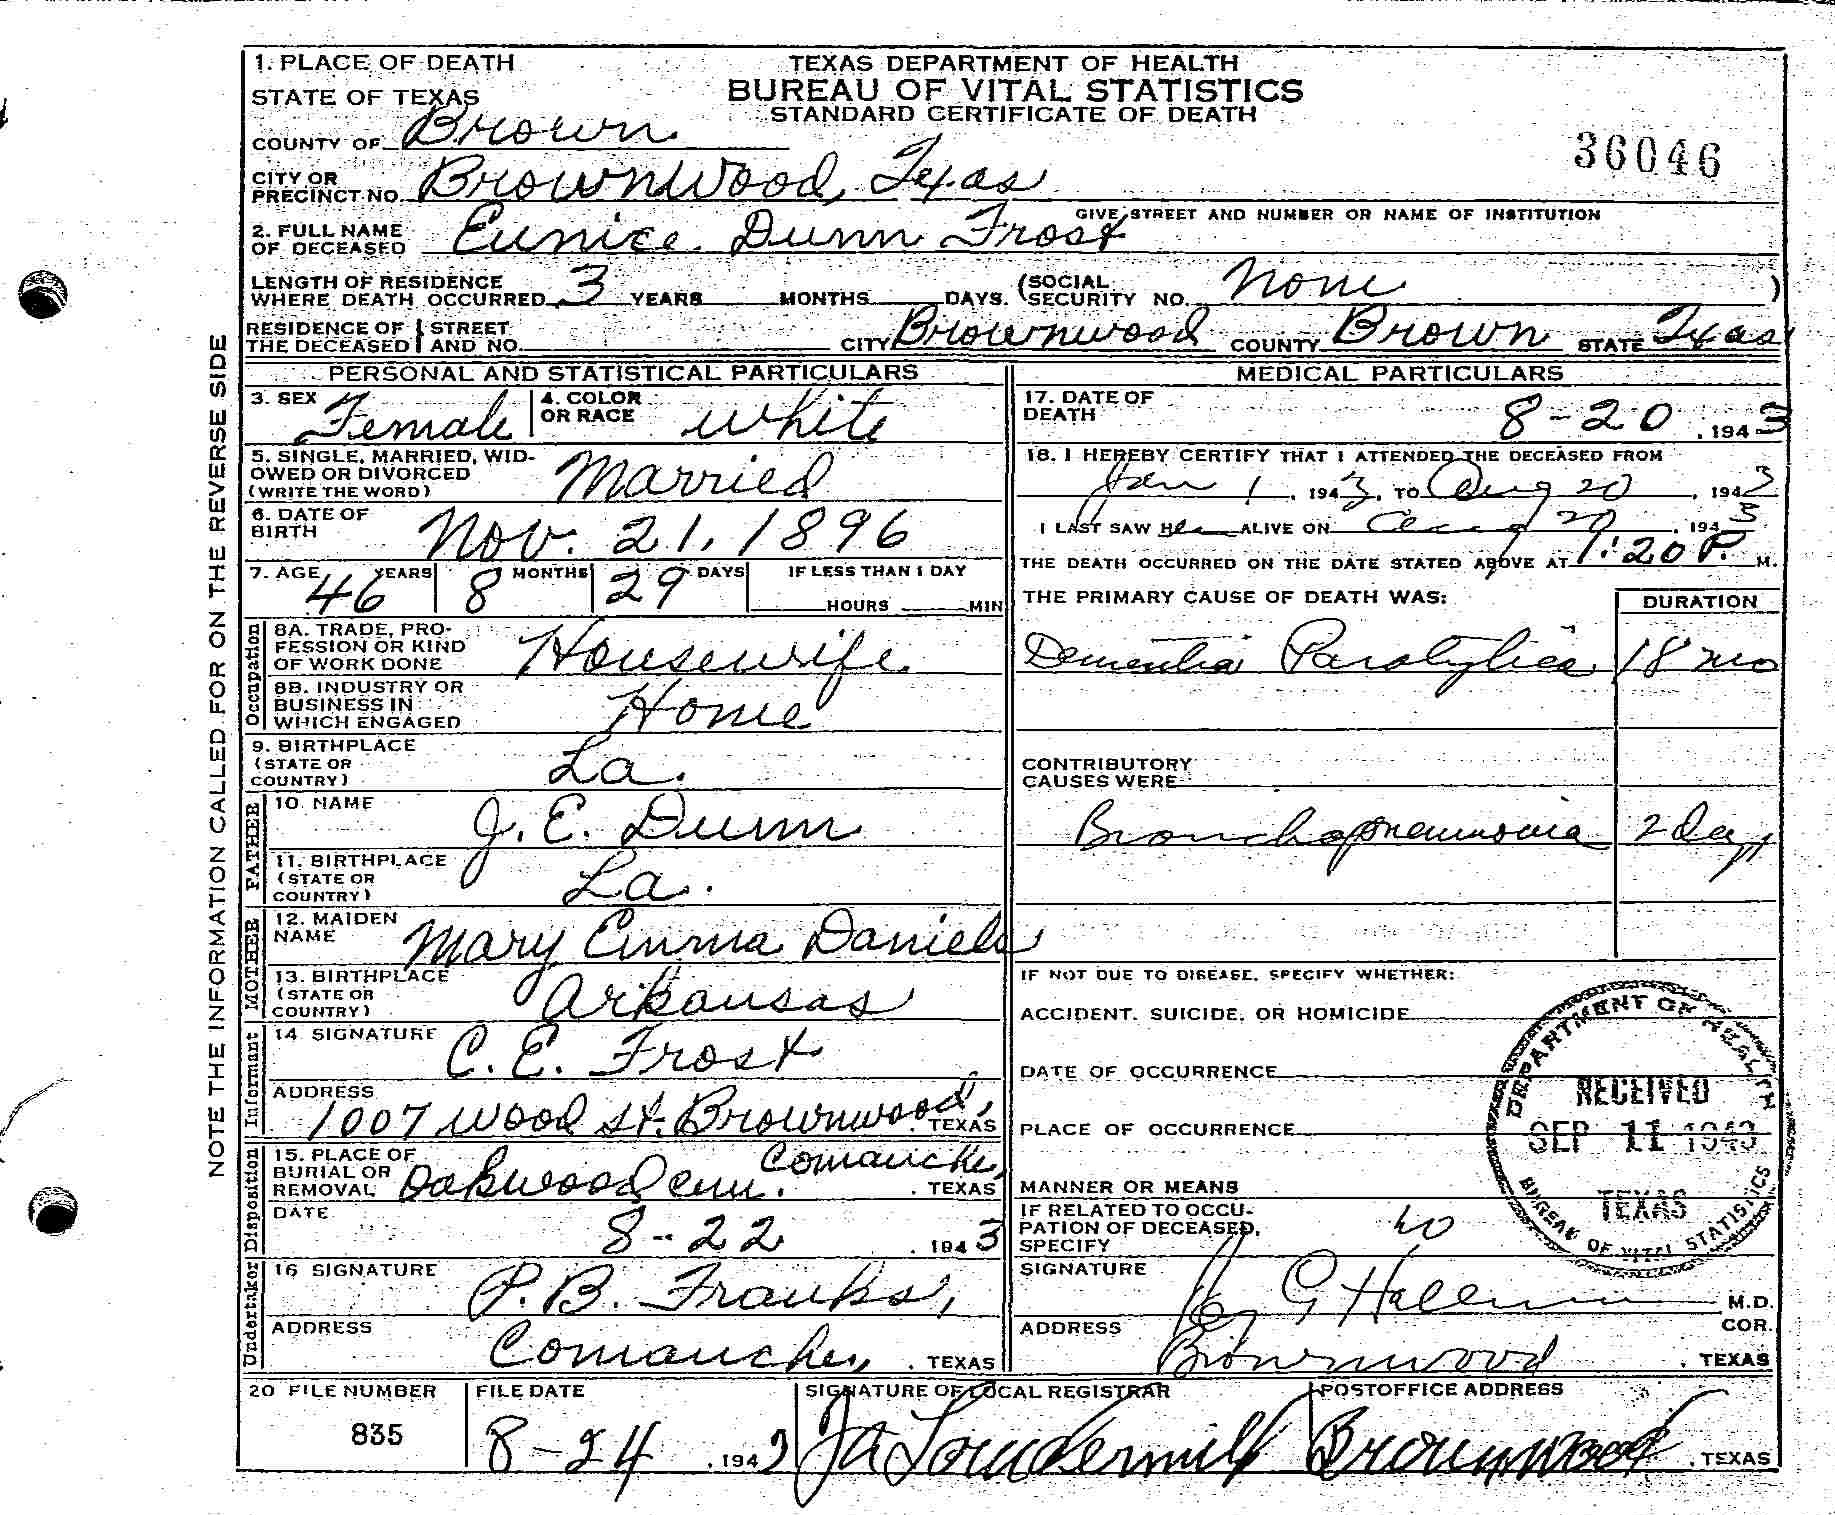 TEXAS DEPARTMENT OF HEALTH
BUREAU OF VITAL STATISTICS
STANDARD CERTIFICATE OF DEATH
36046
1. PLACE OF DEATH
STATE OF TEXAS
COUNTY OF Brown
CITY OR PRECINCT NO. Brownwood, Texas
GIVE STREET AND NUMBER OR NAME OF INSTITUTION
2. FULL NAME OF DECEASED Eunice Dunn Frost
LENGTH OF RESIDENCE WHERE DEATH OCCURRED 3 YEARS MONTHS DAYS. (SOCIAL SECURITY NO. None )
RESIDENCE OF THE DECEASED STREET AND NO. CITY Brownwood COUNTY Brown STATE Texas
NOTE THE INFORMATION CALLED FOR ON THE REVERSE SIDE
PERSONAL AND STATISTICAL PARTICULARS
3. SEX Female 4. COLOR OR RACE White
5. SINGLE, MARRIED, WIDOWED OR DIVORCED (WRITE THE WORD) Married
6. DATE OF BIRTH Nov. 21, 1896
7. AGE 46 YEARS 8 MONTHS 29 DAYS IF LESS THAN 1 DAY HOURS MIN
Occupation
8A. TRADE, PROFESSION OR KIND OF WORK DONE Housewife
8B. INDUSTRY OR BUSINESS IN WHICH ENGAGED Home
9. BIRTHPLACE (STATE OR COUNTRY) La.
FATHER
10. NAME J. E. Dunn
11. BIRTHPLACE (STATE OR COUNTRY) La.
MOTHER
12. MAIDEN NAME Mary Emma Daniels
13. BIRTHPLACE (STATE OR COUNTRY) Arkansas
Informant
14 SIGNATURE C. E. Frost
ADDRESS 1007 Wood St. Brownwood, TEXAS
Disposition
15. PLACE OF BURIAL OR REMOVAL Oakwood Cem. Comanche, TEXAS
DATE 8-22, 1943
Undertaker
16 SIGNATURE P. B. Franks,
ADDRESS Comanche, TEXAS
MEDICAL PARTICULARS
17. DATE OF DEATH 8-20, 1943
18. I HEREBY CERTIFY THAT I ATTENDED THE DECEASED FROM
Jan 1, 1943, TO Aug 20, 1943
I LAST SAW Her ALIVE ON Aug 20, 1943
THE DEATH OCCURRED ON THE DATE STATED ABOVE AT 1:20 P. M.
THE PRIMARY CAUSE OF DEATH WAS: DURATION
Dementia Paralytica 18 mo
CONTRIBUTORY CAUSES WERE
Bronchopneumonia 2 Days
IF NOT DUE TO DISEASE, SPECIFY WHETHER:
ACCIDENT, SUICIDE, OR HOMICIDE
DATE OF OCCURRENCE
PLACE OF OCCURRENCE
MANNER OR MEANS
IF RELATED TO OCCUPATION OF DECEASED, SPECIFY no
SIGNATURE M.D. COR.
ADDRESS Brownwood, TEXAS
DEPARTMENT OF HEALTH
RECEIVED
SEP 11 1943
TEXAS
BUREAU OF VITAL STATISTICS
20 FILE NUMBER 835
FILE DATE 8-24, 1943
SIGNATURE OF LOCAL REGISTRAR
POSTOFFICE ADDRESS Brownwood, TEXAS